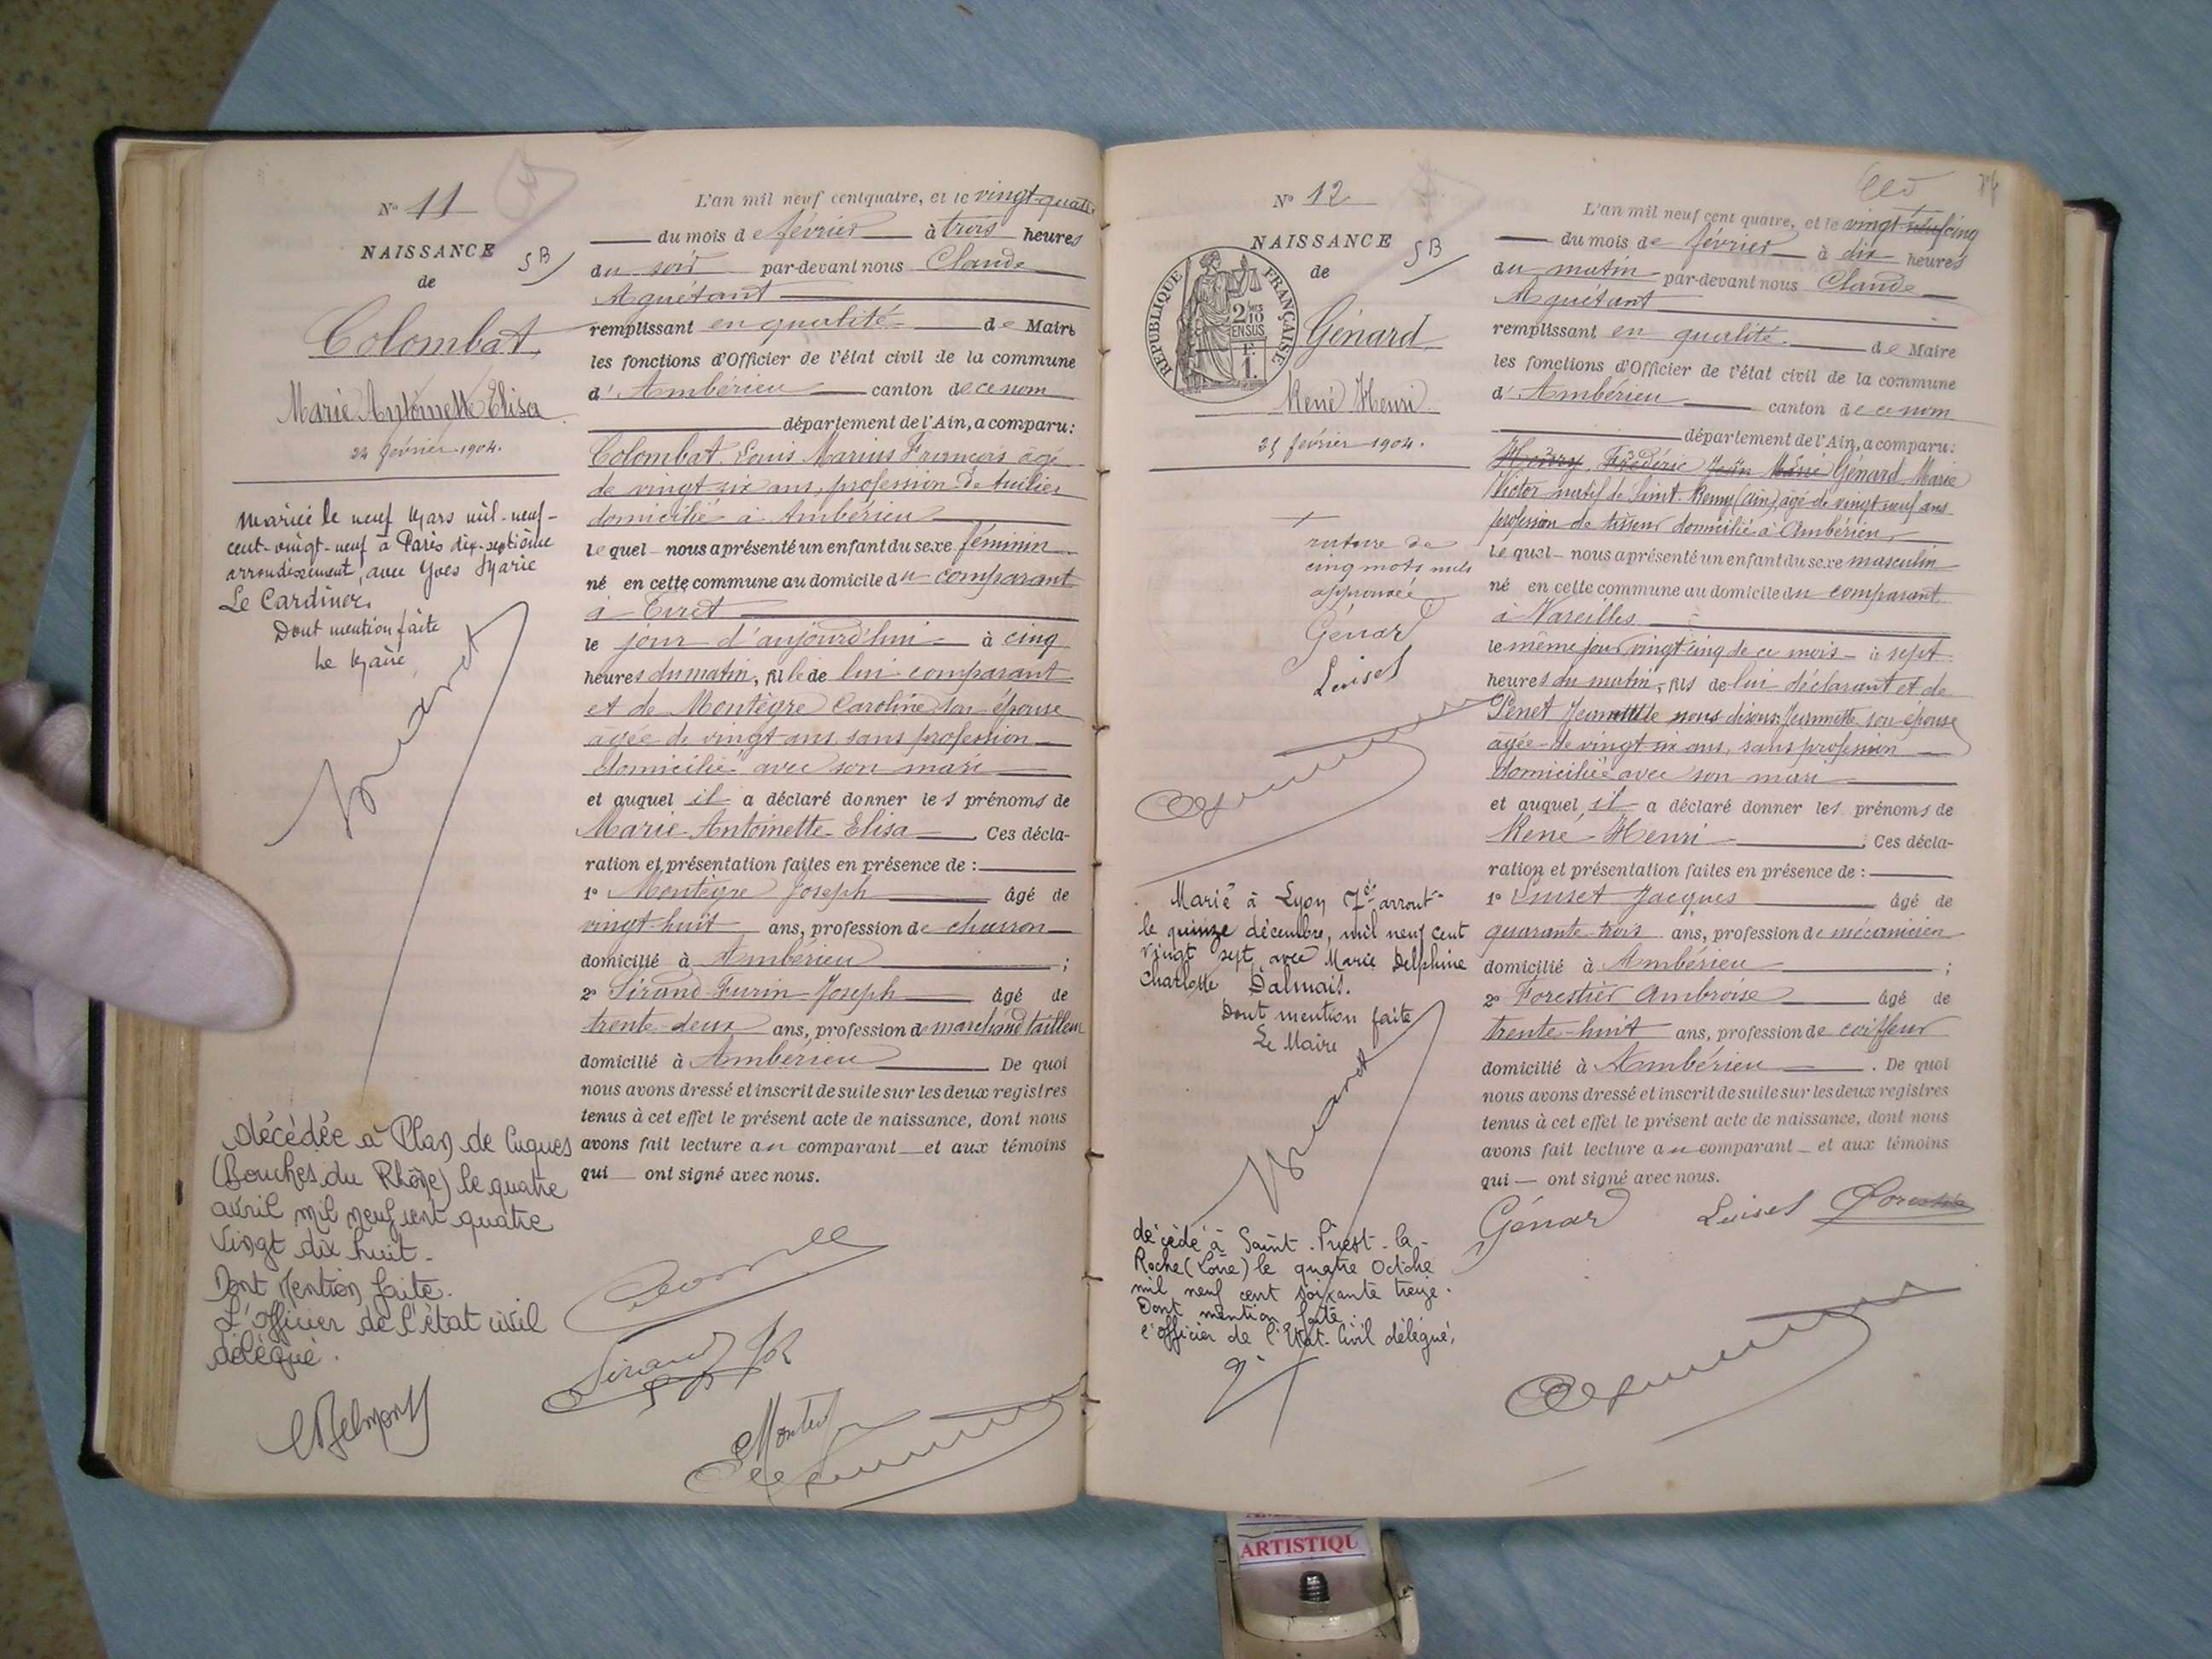 Nº 11
NAISSANCE
de
5 B
Colombat
Marie Antoinette Elisa
24 février 1904.
Mariée le neuf Mars mil-neuf-
cent-vingt-neuf à Paris dix-septième
arrondissement, avec Yves Marie
Le Cardinor.
Dont mention faite
Le Maire,
décédée à Plan de Cuques
(Bouches du Rhône) le quatre
avril mil neuf cent quatre
vingt dix huit.
Dont Mention faite.
L'Officier de l'état civil
délégué.
L'an mil neuf cent quatre, et le vingt-quatre
du mois de février à trois heures
du soir par-devant nous Claude
Aguétant
remplissant en qualité de Maire
les fonctions d'Officier de l'état civil de la commune
d'Ambérieu canton de ce nom
département de l'Ain, a comparu:
Colombat Louis Marius François âgé
de vingt-six ans, profession de tuilier
domicilié à Ambérieu
lequel nous a présenté un enfant du sexe féminin
né en cette commune au domicile du comparant
à Tiret
le jour d'aujourd'hui à cinq
heures du matin, fille de lui comparant
et de Montègre Caroline son épouse
âgée de vingt ans sans profession
domiciliée avec son mari
et auquel il a déclaré donner les prénoms de
Marie-Antoinette-Elisa. Ces décla-
ration et présentation faites en présence de :
1º Montègre Joseph âgé de
vingt-huit ans, profession de charron
domicilié à Ambérieu ;
2º Sirand-Furin Joseph âgé de
trente-deux ans, profession de marchand tailleur
domicilié à Ambérieu. De quoi
nous avons dressé et inscrit de suite sur les deux registres
tenus à cet effet le présent acte de naissance, dont nous
avons fait lecture au comparant et aux témoins
qui ont signé avec nous.
Nº 12
NAISSANCE
de
5 B
RÉPUBLIQUE FRANÇAISE
2/10
EN SUS
1.
Génard
René Henri
25 février 1904.
rature de
cinq mots nuls
approuvée
Génard
Luiset
Marié à Lyon 7e arrout
le quinze décembre, mil neuf cent
vingt sept, avec Marie Delphine
Charlotte Dalmais.
Dont mention faite
Le Maire
décédé à Saint-Priest-la-
Roche (Loire) le quatre Octobre
mil neuf cent soixante treize.
Dont mention faite.
l'officier de l'Etat-Civil délégué,
L'an mil neuf cent quatre, et le vingt-neuf cinq
du mois de février à dix heures
du matin par-devant nous Claude
Aguétant
remplissant en qualité de Maire
les fonctions d'Officier de l'état civil de la commune
d'Ambérieu canton de ce nom
département de l'Ain, a comparu:
Frédéric Jean Génard Marie
Victor natif de Saint-Remy (Ain) âgé de vingt-neuf ans
profession de tisseur domicilié à Ambérieu
lequel nous a présenté un enfant du sexe masculin
né en cette commune au domicile du comparant
à Vareilles
le même jour vingt cinq de ce mois à sept
heures du matin, fils de lui déclarant et de
Penet nous disons Jeannette son épouse
âgée de vingt-six ans, sans profession
domiciliée avec son mari
et auquel il a déclaré donner les prénoms de
René-Henri. Ces décla-
ration et présentation faites en présence de :
1º Luiset Jacques âgé de
quarante-trois ans, profession de mécanicien
domicilié à Ambérieu ;
2º Forestier Ambroise âgé de
trente-huit ans, profession de coiffeur
domicilié à Ambérieu. De quoi
nous avons dressé et inscrit de suite sur les deux registres
tenus à cet effet le présent acte de naissance, dont nous
avons fait lecture au comparant et aux témoins
qui ont signé avec nous.
Génard Luiset
ARTISTIQU